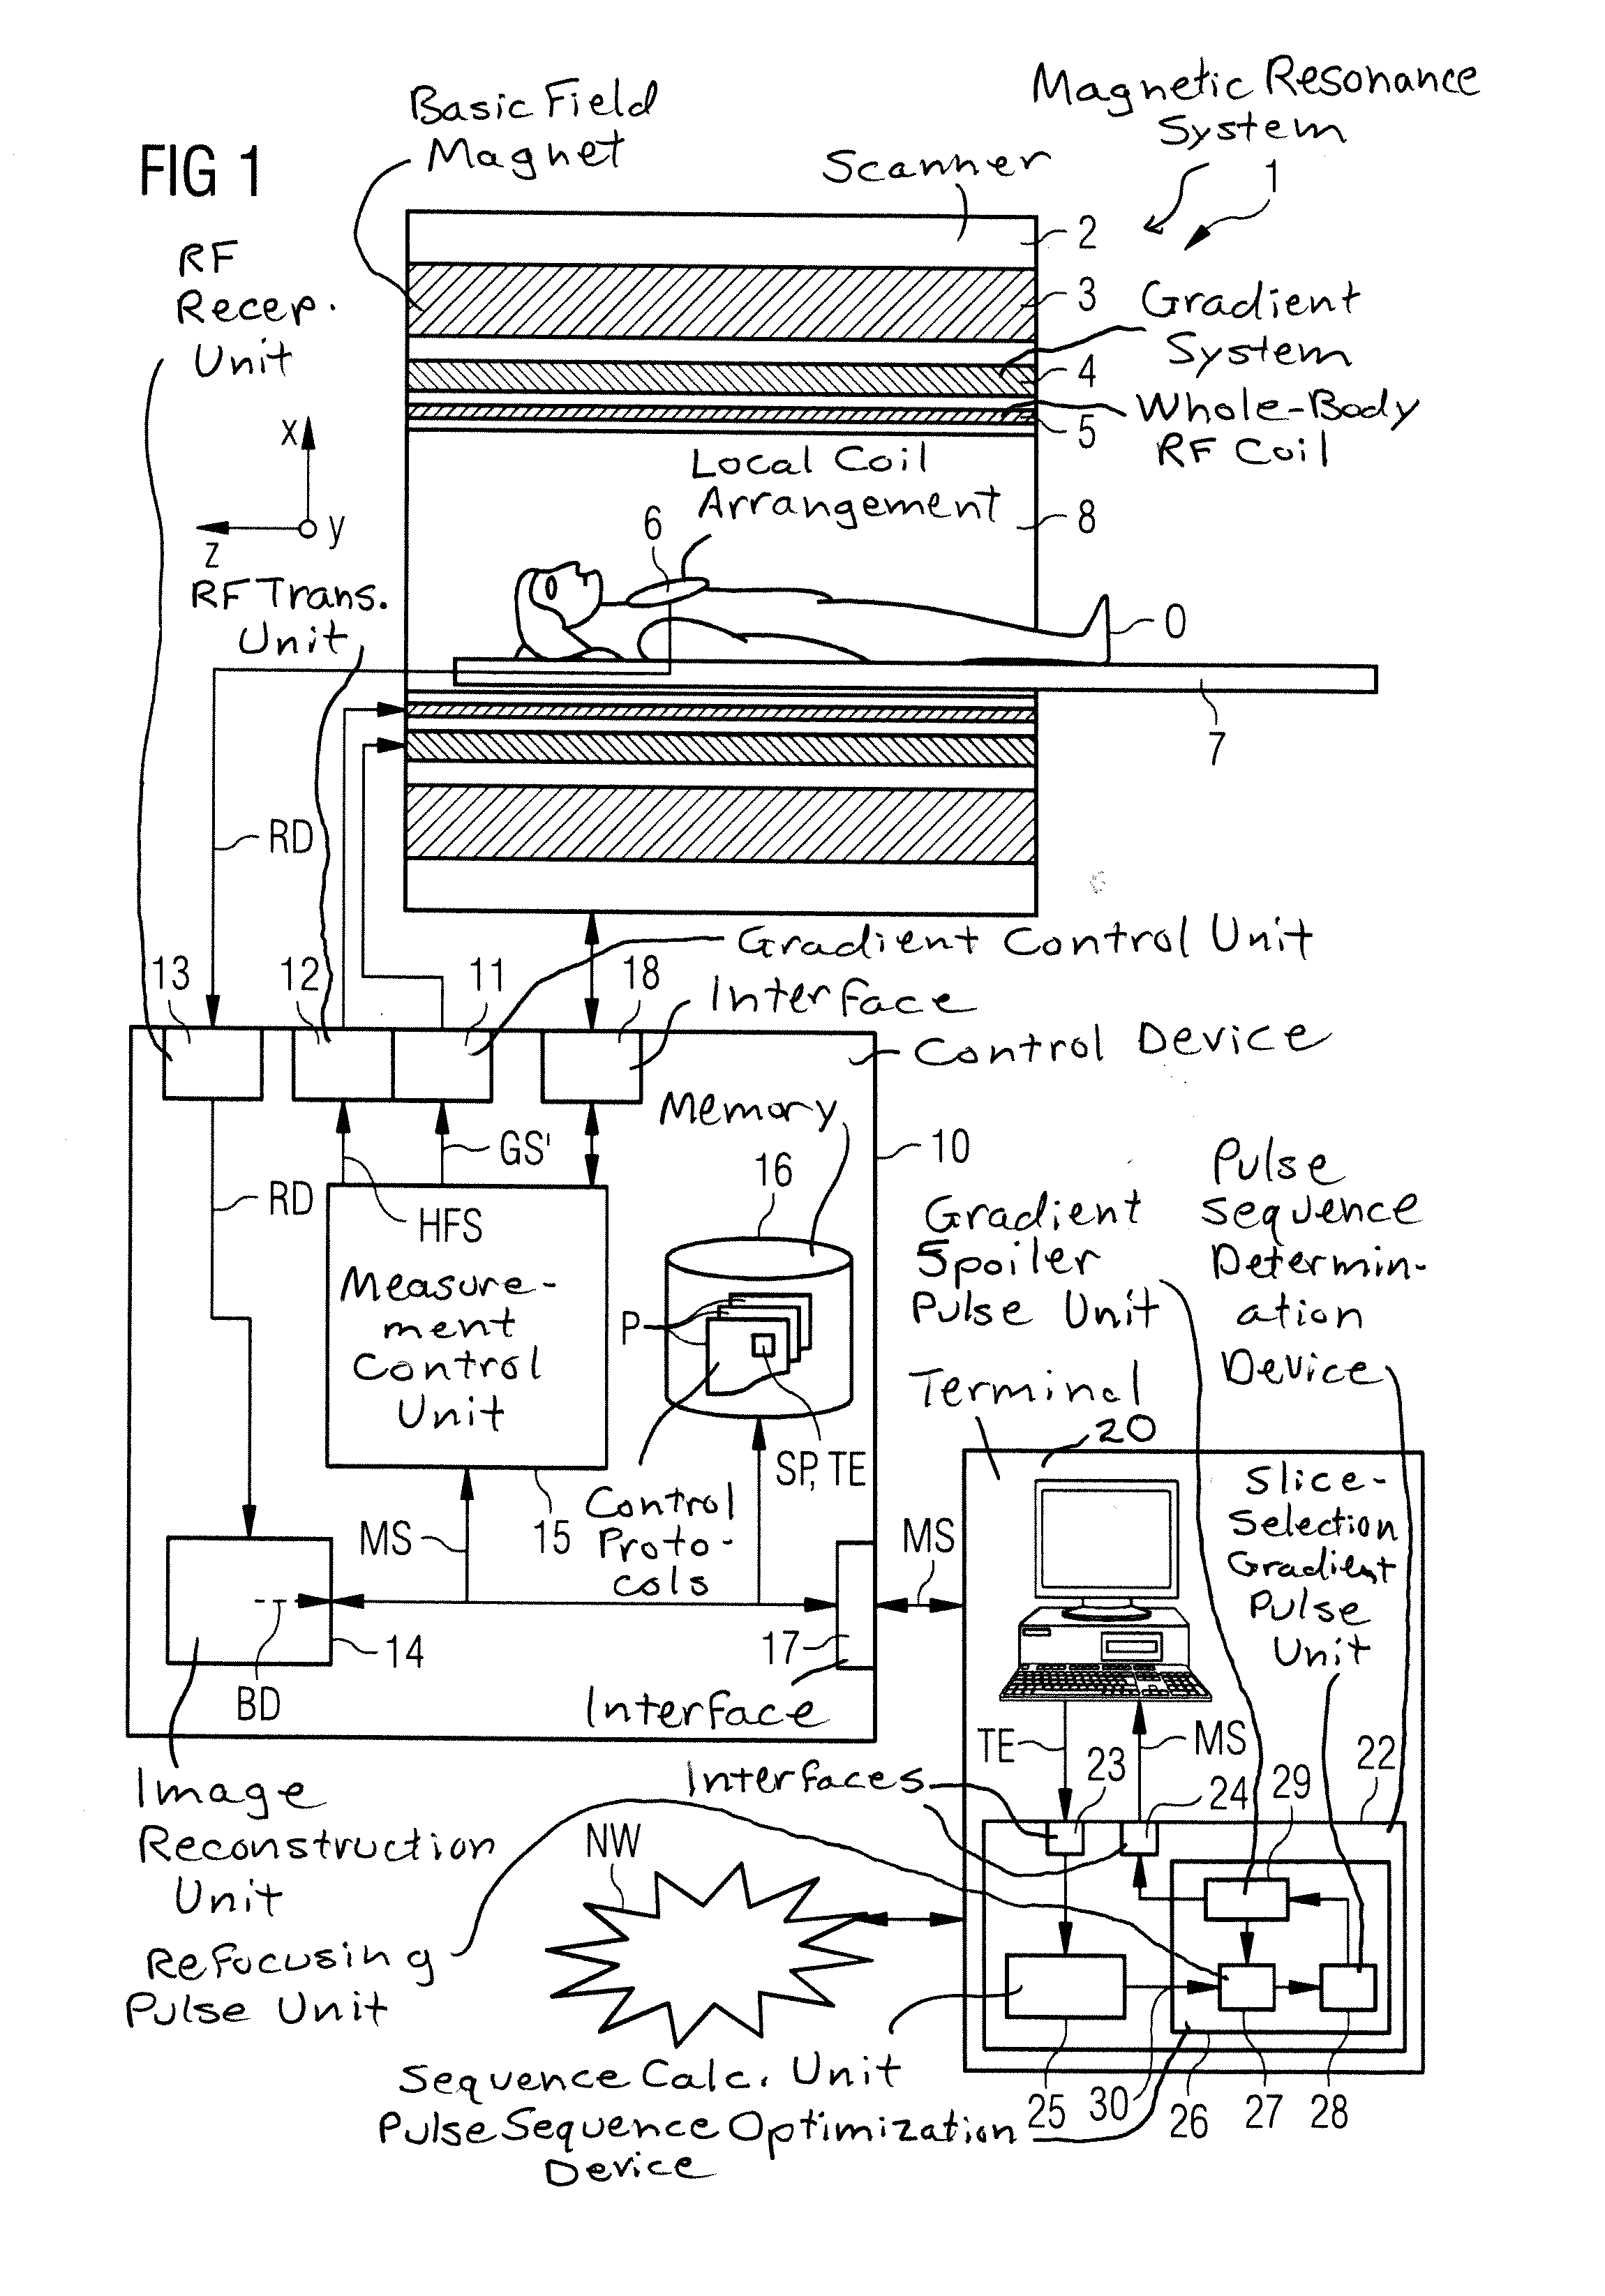 FIG 1
Basic Field
Magnet
Scanner
Magnetic Resonance
System
1
2
3
4
5
RF
Recep.
Unit
Gradient
System
Whole-Body
RF Coil
x
z
y
Local Coil
Arrangement
6
8
RF Trans.
Unit
O
7
RD
13
12
11
18
Gradient Control Unit
Interface
Control Device
10
RD
HFS
GS'
Memory
16
Measure-
ment
Control
Unit
P
SP, TE
15
Control
Proto-
cols
MS
MS
14
BD
17
Interface
Image
Reconstruction
Unit
Gradient
Spoiler
Pulse Unit
Pulse
Sequence
Determin-
ation
Device
Terminal
20
Slice-
Selection
Gradient
Pulse
Unit
TE
MS
23
24
29
22
Interfaces
NW
Refocusing
Pulse Unit
Sequence Calc. Unit
Pulse Sequence Optimization
Device
25
30
26
26
27
28